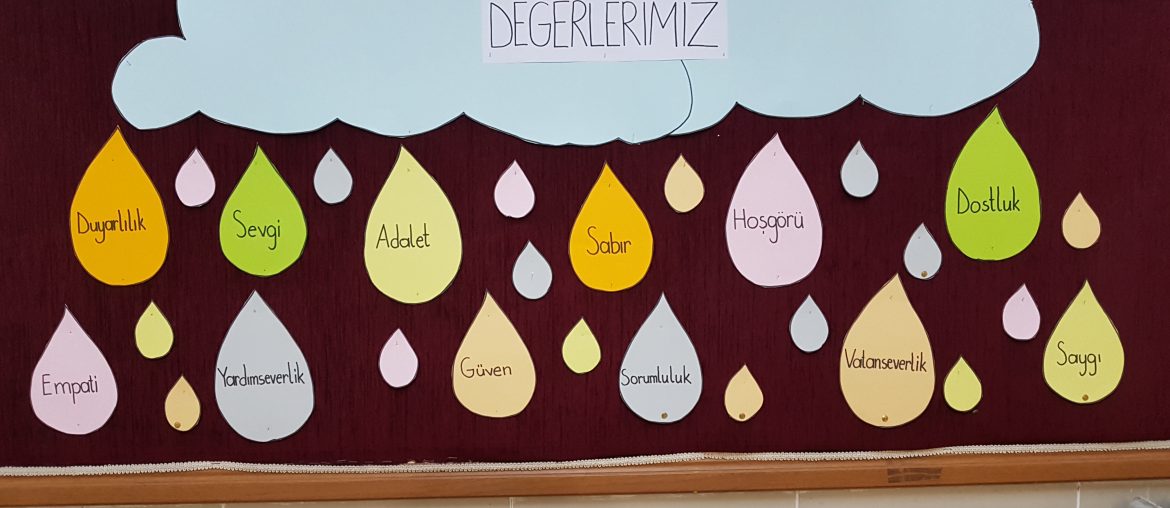 DEĞERLERİMİZ
Duyarlılık
Sevgi
Adalet
Sabır
Hoşgörü
Dostluk
Empati
Yardımseverlik
Güven
Sorumluluk
Vatanseverlik
Saygı